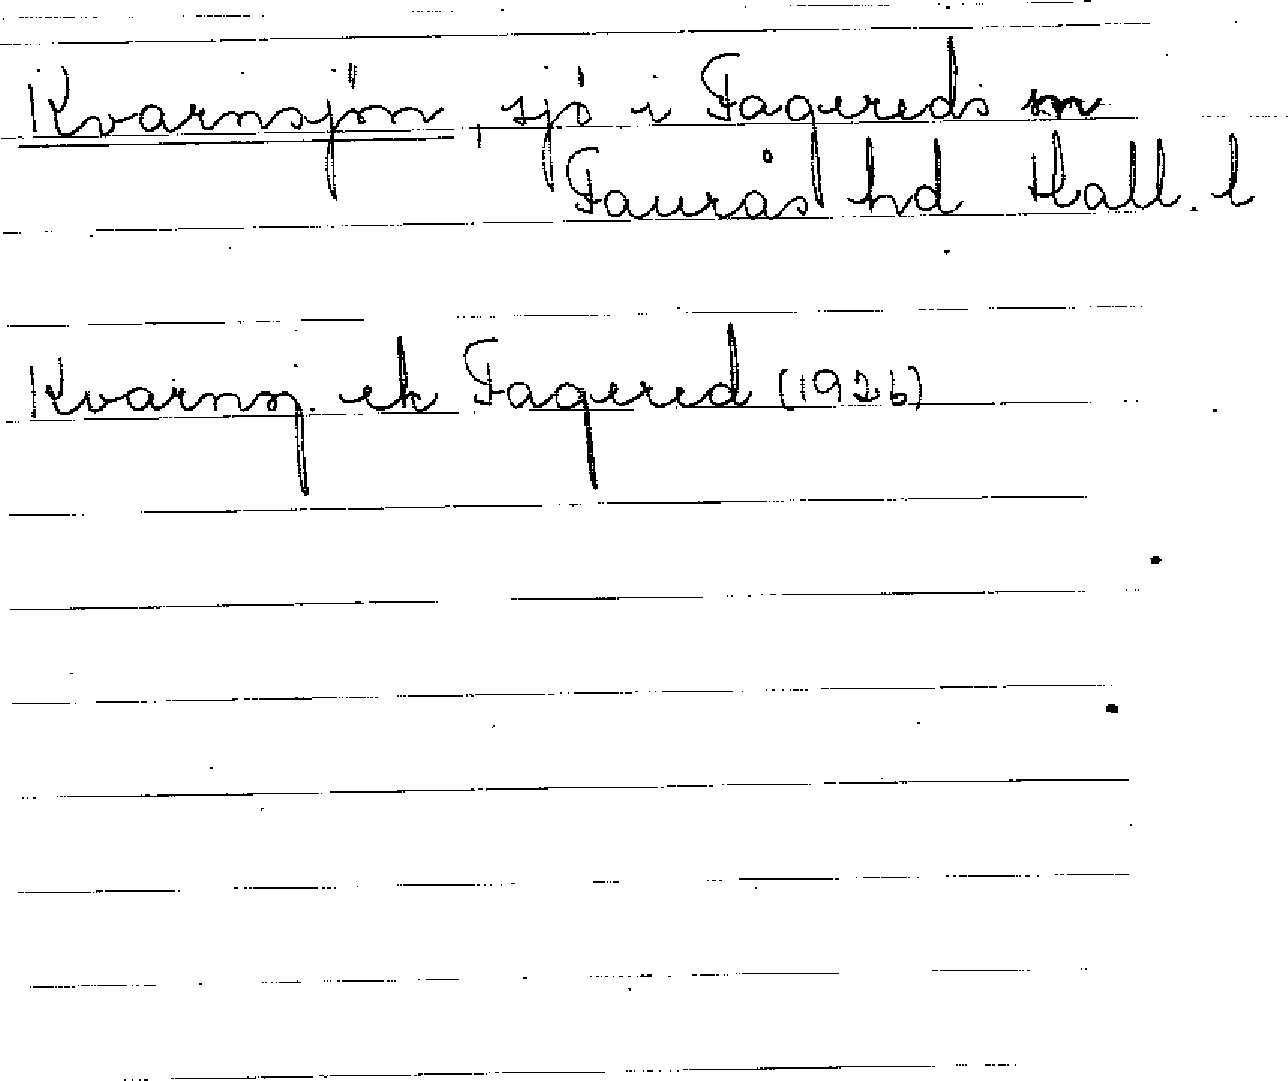 Kvarnsjön, sjö i Fagereds sn
Faurås hd Hall. l
Kvarnsj. ek Fagered (1926)